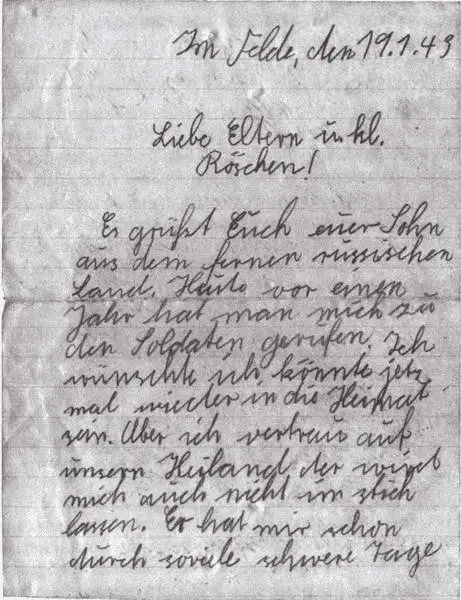 Im Felde, den 19.1.43
Liebe Eltern u. kl.
Röschen!
Es grüßt Euch euer Sohn
aus dem fernen russischen
Land. Heute vor einen
Jahr hat man mich zu
den Soldaten gerufen. Ich
wünschte ich könnte jetz
mal wieder in die Heimat
sein. Aber ich vertrau auf
unsern Heiland der wird
mich auch nicht im stich
lassen. Er hat mir schon
durch soviele schwere Tage